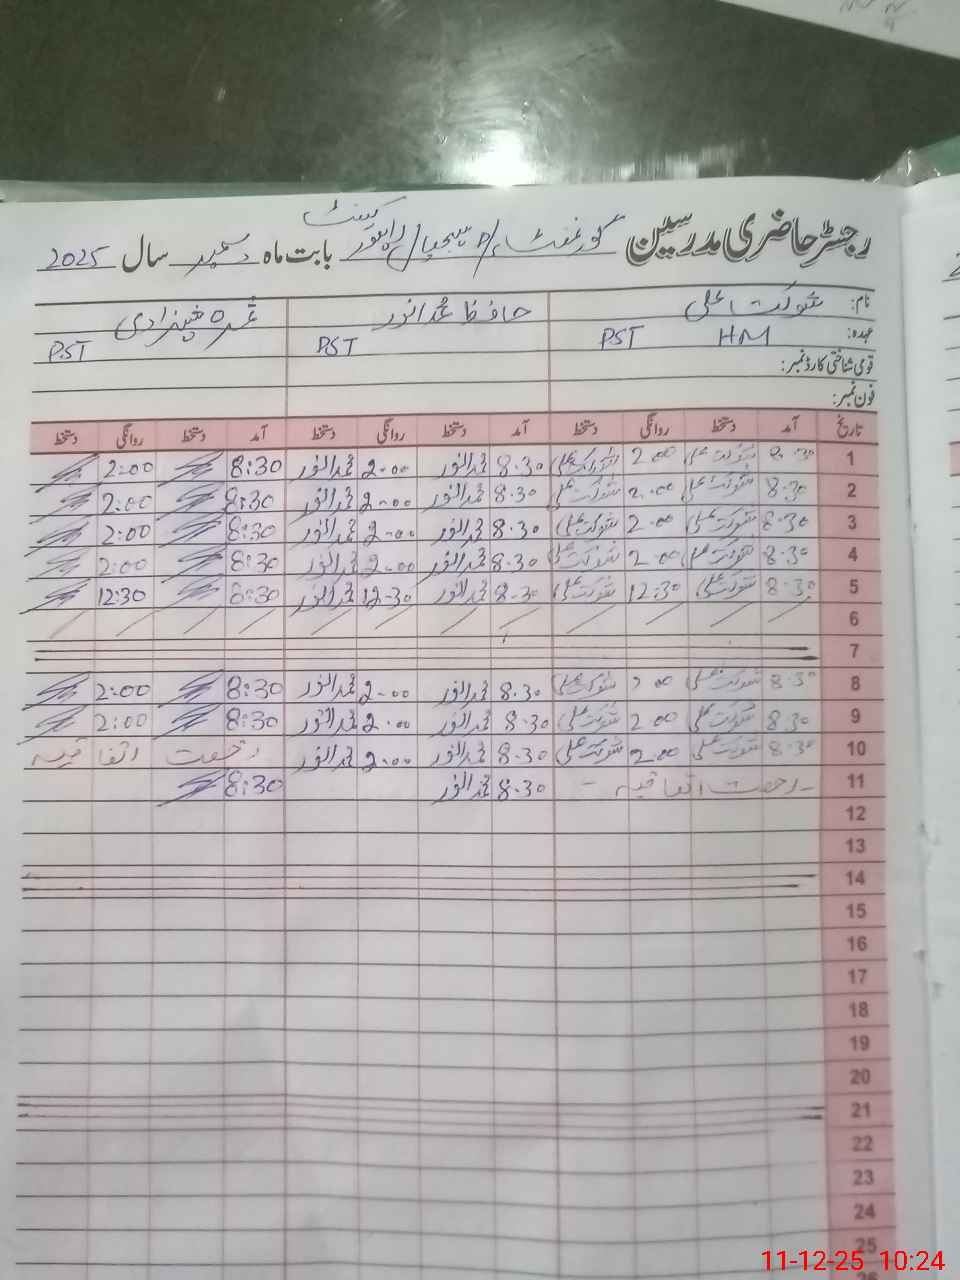 رجسٹر حاضری مدرسین گورنمنٹ بابت ماہ دسمبر سال 2025
نام: شوکت علی حافظ محمد انور شہزادی
عہدہ: HM PST PST PST
قومی شناختی کارڈ نمبر:
فون نمبر:
تاریخ آمد دستخط روانگی دستخط آمد دستخط روانگی دستخط آمد دستخط روانگی دستخط
1 8:30 شوکت علی 2:00 شوکت علی 8:30 محمد انور 2:00 محمد انور 8:30 2:00
2 8:30 شوکت علی 2:00 شوکت علی 8:30 محمد انور 2:00 محمد انور 8:30 2:00
3 8:30 شوکت علی 2:00 شوکت علی 8:30 محمد انور 2:00 محمد انور 8:30 2:00
4 8:30 شوکت علی 2:00 شوکت علی 8:30 محمد انور 2:00 محمد انور 8:30 2:00
5 8:30 شوکت علی 12:30 شوکت علی 8:30 محمد انور 12:30 محمد انور 8:30 12:30
6
7
8 8:30 شوکت علی 2:00 شوکت علی 8:30 محمد انور 2:00 محمد انور 8:30 2:00
9 8:30 شوکت علی 2:00 شوکت علی 8:30 محمد انور 2:00 محمد انور 8:30 2:00
10 8:30 شوکت علی 2:00 شوکت علی 8:30 محمد انور 2:00 محمد انور رخصت اتفاقیہ
11 رخصت اتفاقیہ 8:30 محمد انور 8:30
12
13
14
15
16
17
18
19
20
21
22
23
24
25
26
11-12-25 10:24